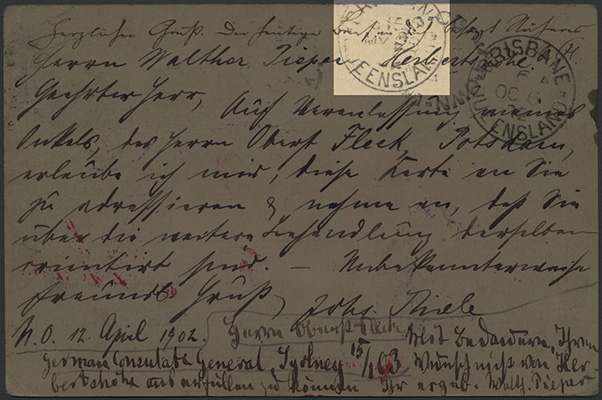 Herzlichen Gruß. Der heutige
Herrn Walther Pieper Herbertshöhe.
Geehrter Herr, Auf Veranlassung meines
Onkels, des Herrn Oberst Fleck, Potsdam,
erlaube ich mir, diese Karte an Sie
zu adressieren & nehme an, daß Sie
über die weitere Behandlung derselben
orientirt sind. — Unbekannterweise
freundl. Gruß, Johs. Thiele
N.O. 12. April 1902. Herrn Oberst Fleck
Mit Bedauern, Ihren
German Consulate General, Sydney 15/1 03 Wunsch nicht von Her-
bertshöhe aus erfüllen zu können Ihr ergeb. Walth. Pieper
BRISBANE
OC 6
QUEENSLAND
EENSLAND